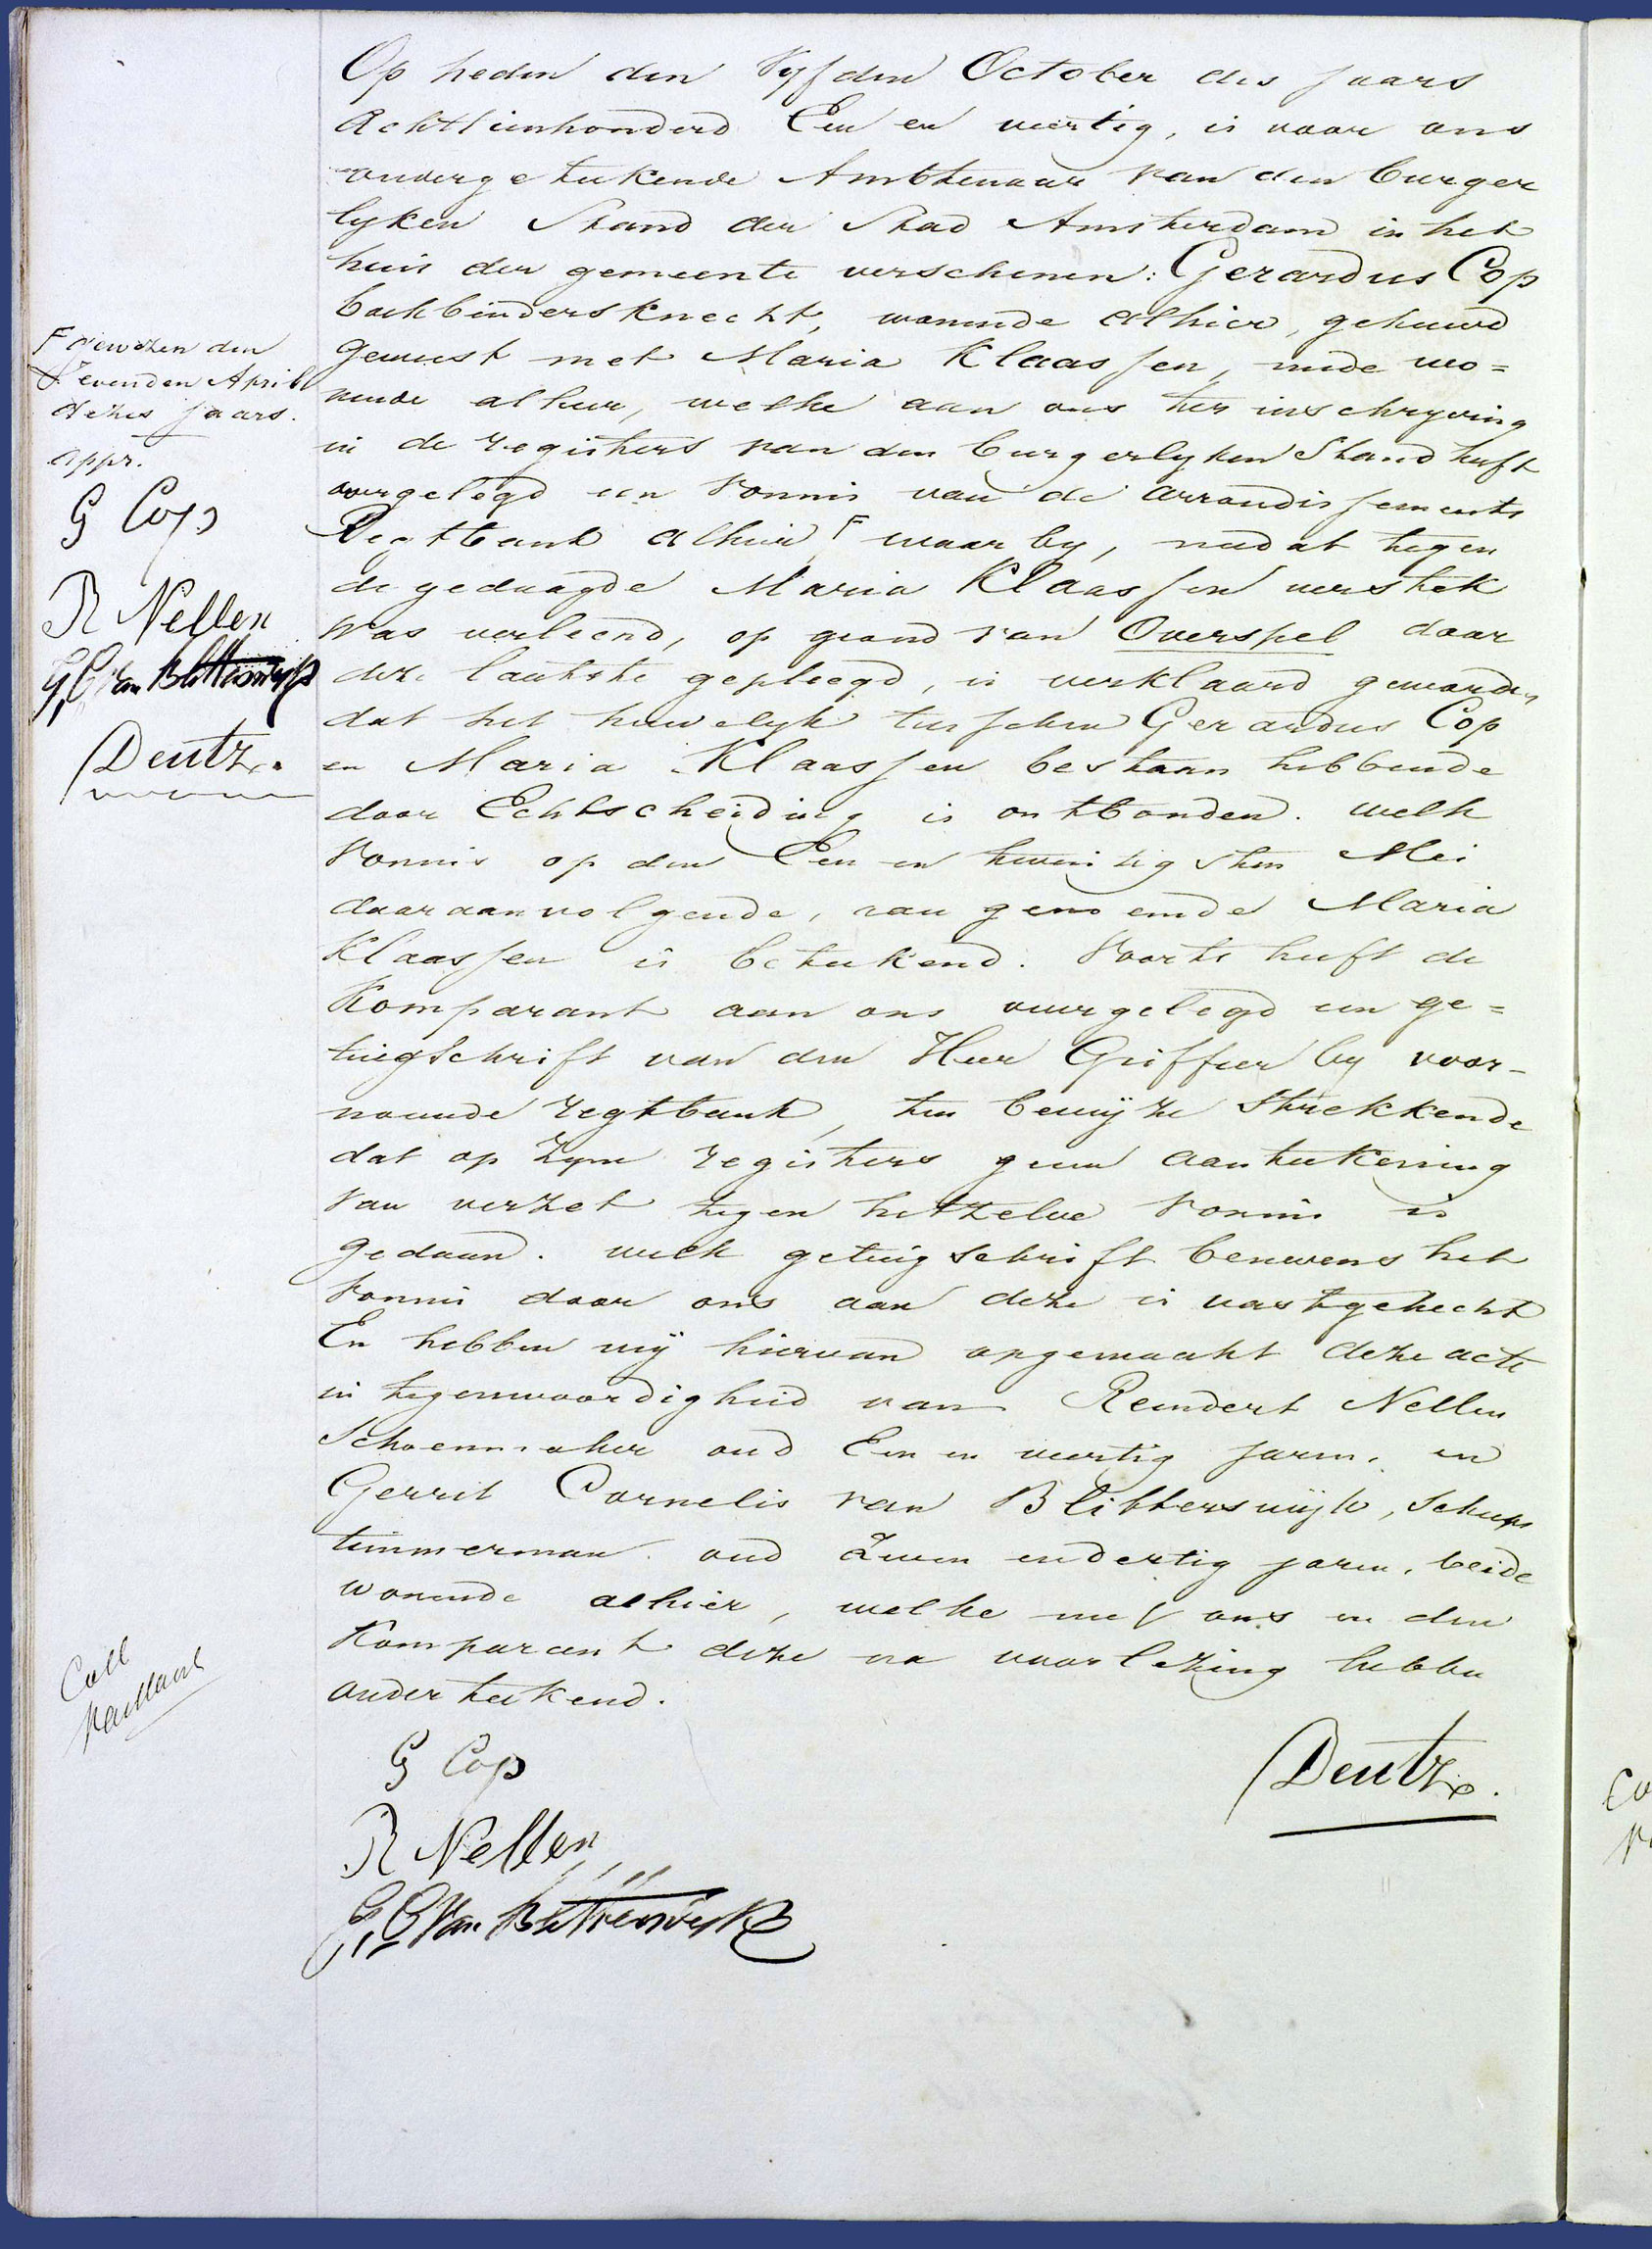 Op heden den Vyfden October des jaars
Achttienhonderd Een en veertig, is voor ons
ondergeteekende Ambtenaar van den burger
lyken Stand der Stad Amsterdam in het
huis der gemeente verschenen: Gerardus Cop
boekbindersknecht, wonende alhier, gehuwd
geweest met Maria Klaassen, mede wo=
nende alhier, welke aan ons ter inschryving
in de registers van den burgerlyken Stand heeft
overgelegd een vonnis van de arrondissements
Regtbank alhier F waar by, nadat tegen
de gedaagde Maria Klaassen verstek
was verleend, op grond van Overspel door
deze laatste gepleegd, is verklaard geworden
dat het huwelyk tusschen Gerardus Cop
en Maria Klaassen bestaan hebbende
door Echtscheiding is ontbonden. welk
vonnis op den Een en twintigsten Mei
daaraanvolgende, aan genoemde Maria
Klaassen is beteekend. Voorts heeft de
Komparant aan ons overgelegd een ge=
tuigschrift van den Heer Griffier by voor-
noemde regtbank, ten bewijze strekkende
dat op zyne registers geene aanteekening
van verzet tegen hetzelve vonnis is
gedaan. welk getuigschrift benevens het
vonnis door ons aan deze is vastgehecht
En hebben wij hiervan opgemaakt deze acte
in tegenwoordigheid van Reindert Nellen
Schoenmaker oud Een en veertig jaren, en
Gerrit Cornelis van Blitterswijk, Scheeps
timmerman oud Zeven en dertig jaren, beide
wonende alhier, welke met ons en den
Komparant deze na voorlezing hebben
onderteekend.
G Cop
R Nellen
G, C Van Blitterswijk
Deutz.
F Gewezen den
Zevenden April
dezes jaars.
appr.
G Cop
R Nellen
G, C van Blitterswijk
Deutz.
Coll